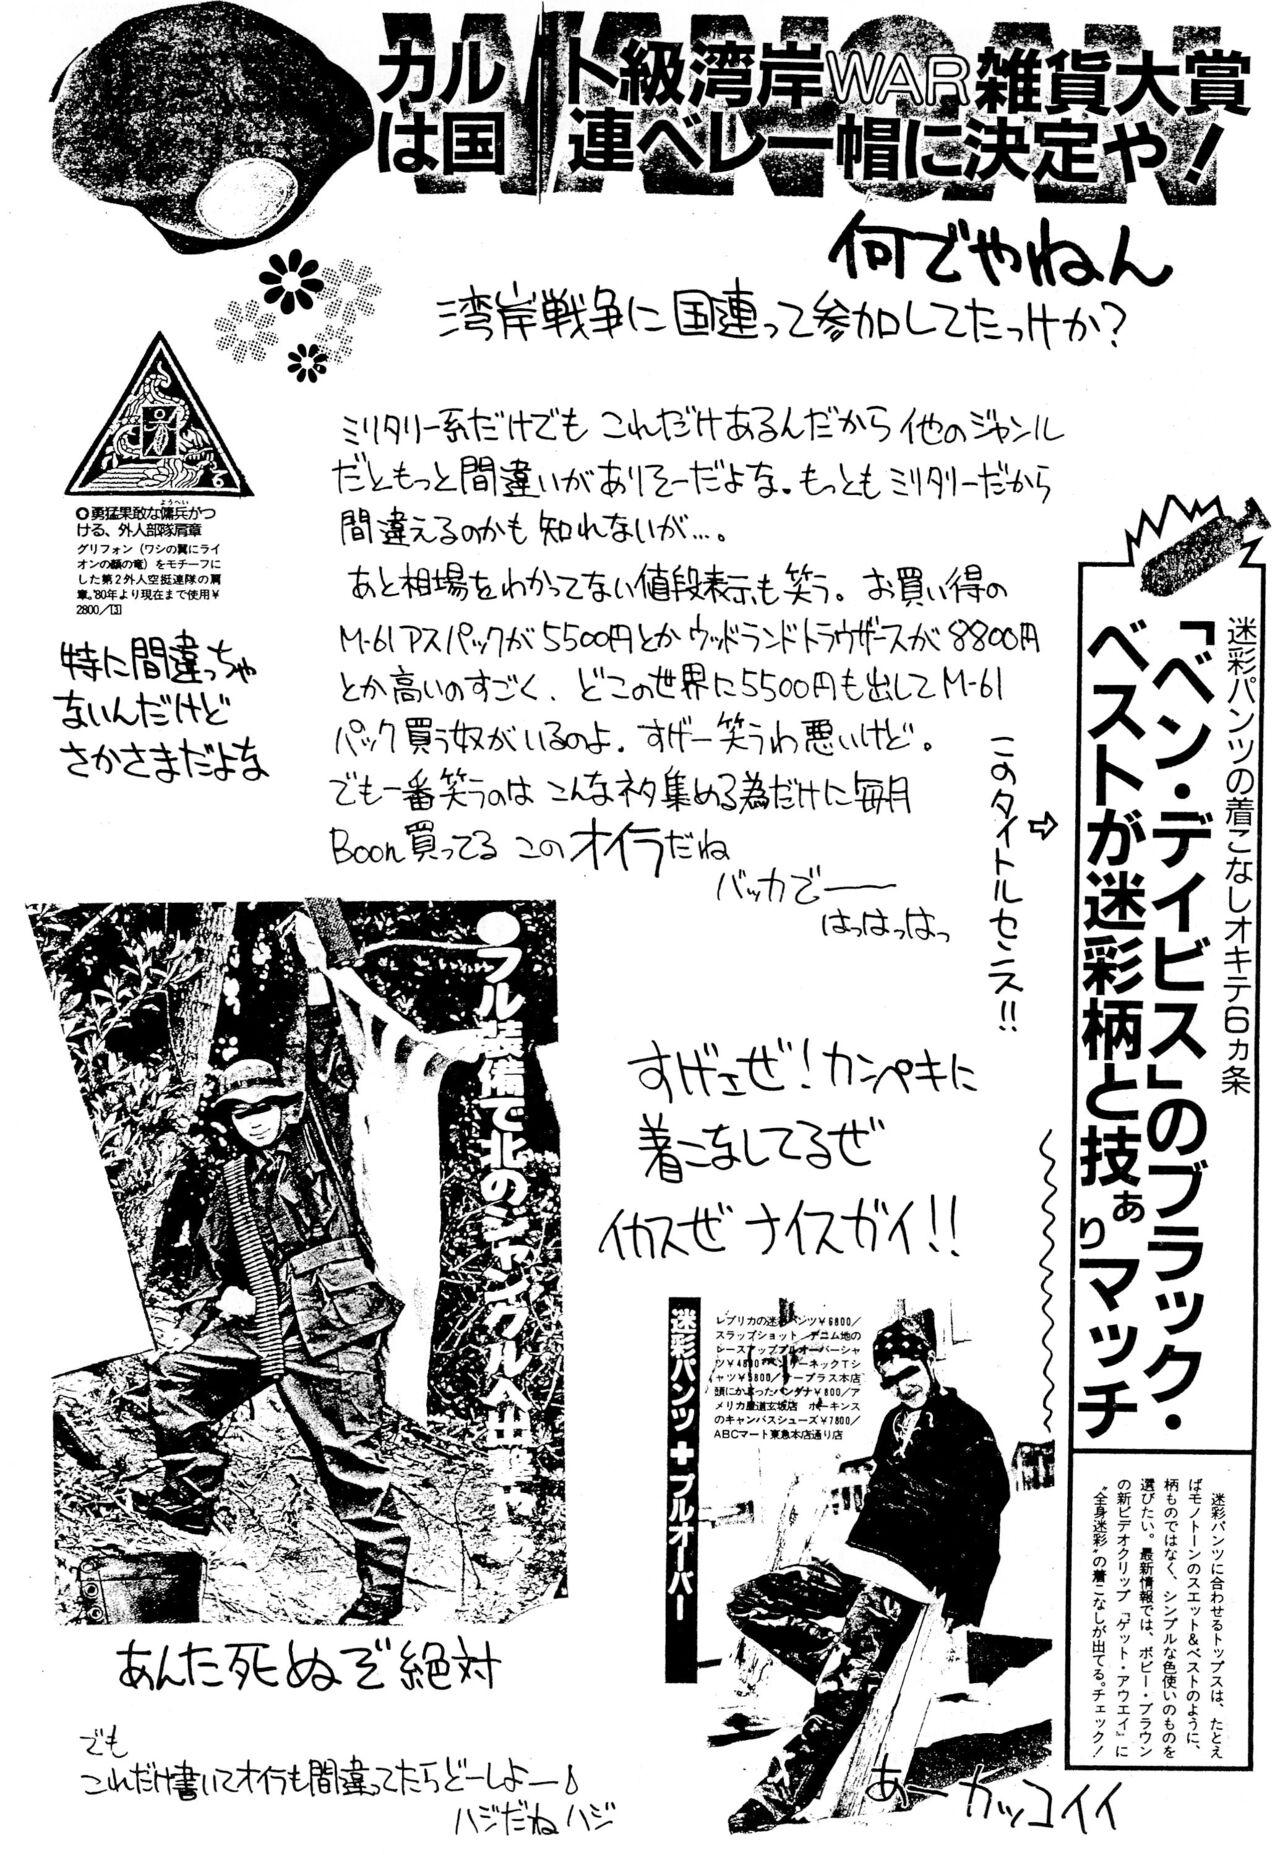 WANGAN
カルト級湾岸WAR雑貨大賞
は国連ベレー帽に決定や！
何でやねん
湾岸戦争に国連って参加してたっけか？
ミリタリー系だけでも これだけあるんだから 他のジャンル
だともっと間違いがありそーだよな。もっともミリタリーだから
間違えるのかも知れないが…。
あと相場をわかってない値段表示も笑う。お買い得の
M-61アスパックが5500円とかウッドランドトラウザースが8800円
とか高いのすごく、どこの世界に5500円も出してM-61
パック買う奴がいるのよ。すげー笑うわ悪いけど。
でも一番笑うのは こんなネタ集める為だけに毎月
Boon買ってる このオイラだね
バッカでー
はっはっはっ
◎勇猛果敢な傭兵がつ
ようへい
ける、外人部隊肩章
グリフォン（ワシの翼にライ
オンの顔の竜）をモチーフに
した第2外人空挺連隊の肩
章。'80年より現在まで使用¥
2800／[3]
特に間違っちゃ
ないんだけど
さかさまだよな
このタイトルセンス!!
⇨
迷彩パンツの着こなしオキテ6カ条
「ベン・デイビス」のブラック・
ベストが迷彩柄と技ぁりマッチ
迷彩パンツに合わせるトップスは、たとえ
ばモノトーンのスエット&ベストのように、
柄ものではなく、シンプルな色使いのものを
選びたい。最新情報では、ボビー・ブラウン
の新ビデオクリップ『ゲット・アウエイ』に
“全身迷彩”の着こなしが出てる。チェック！
●フル装備で北のジャングルへ出撃
すげさぜ！カンペキに
着こなしてるぜ
イカスぜ ナイスガイ!!
迷彩パンツ＋プルオーバー
レプリカの迷彩パンツ¥6800／
スラップショット デニム地の
レースアッププルオーバーシャ
ツ¥4800 ヘンリーネックTシ
ャツ¥5800／ナープラス本店
頭にかぶったバンダナ¥800／ア
メリカ屋道玄坂店 ホーキンス
のキャンバスシューズ¥7800／
ABCマート東急本店通り店
あんた死ぬぞ絶対
でも
これだけ書いてオイラも間違ってたらどーしよー♪
ハジだね ハジ
あーカッコイイ